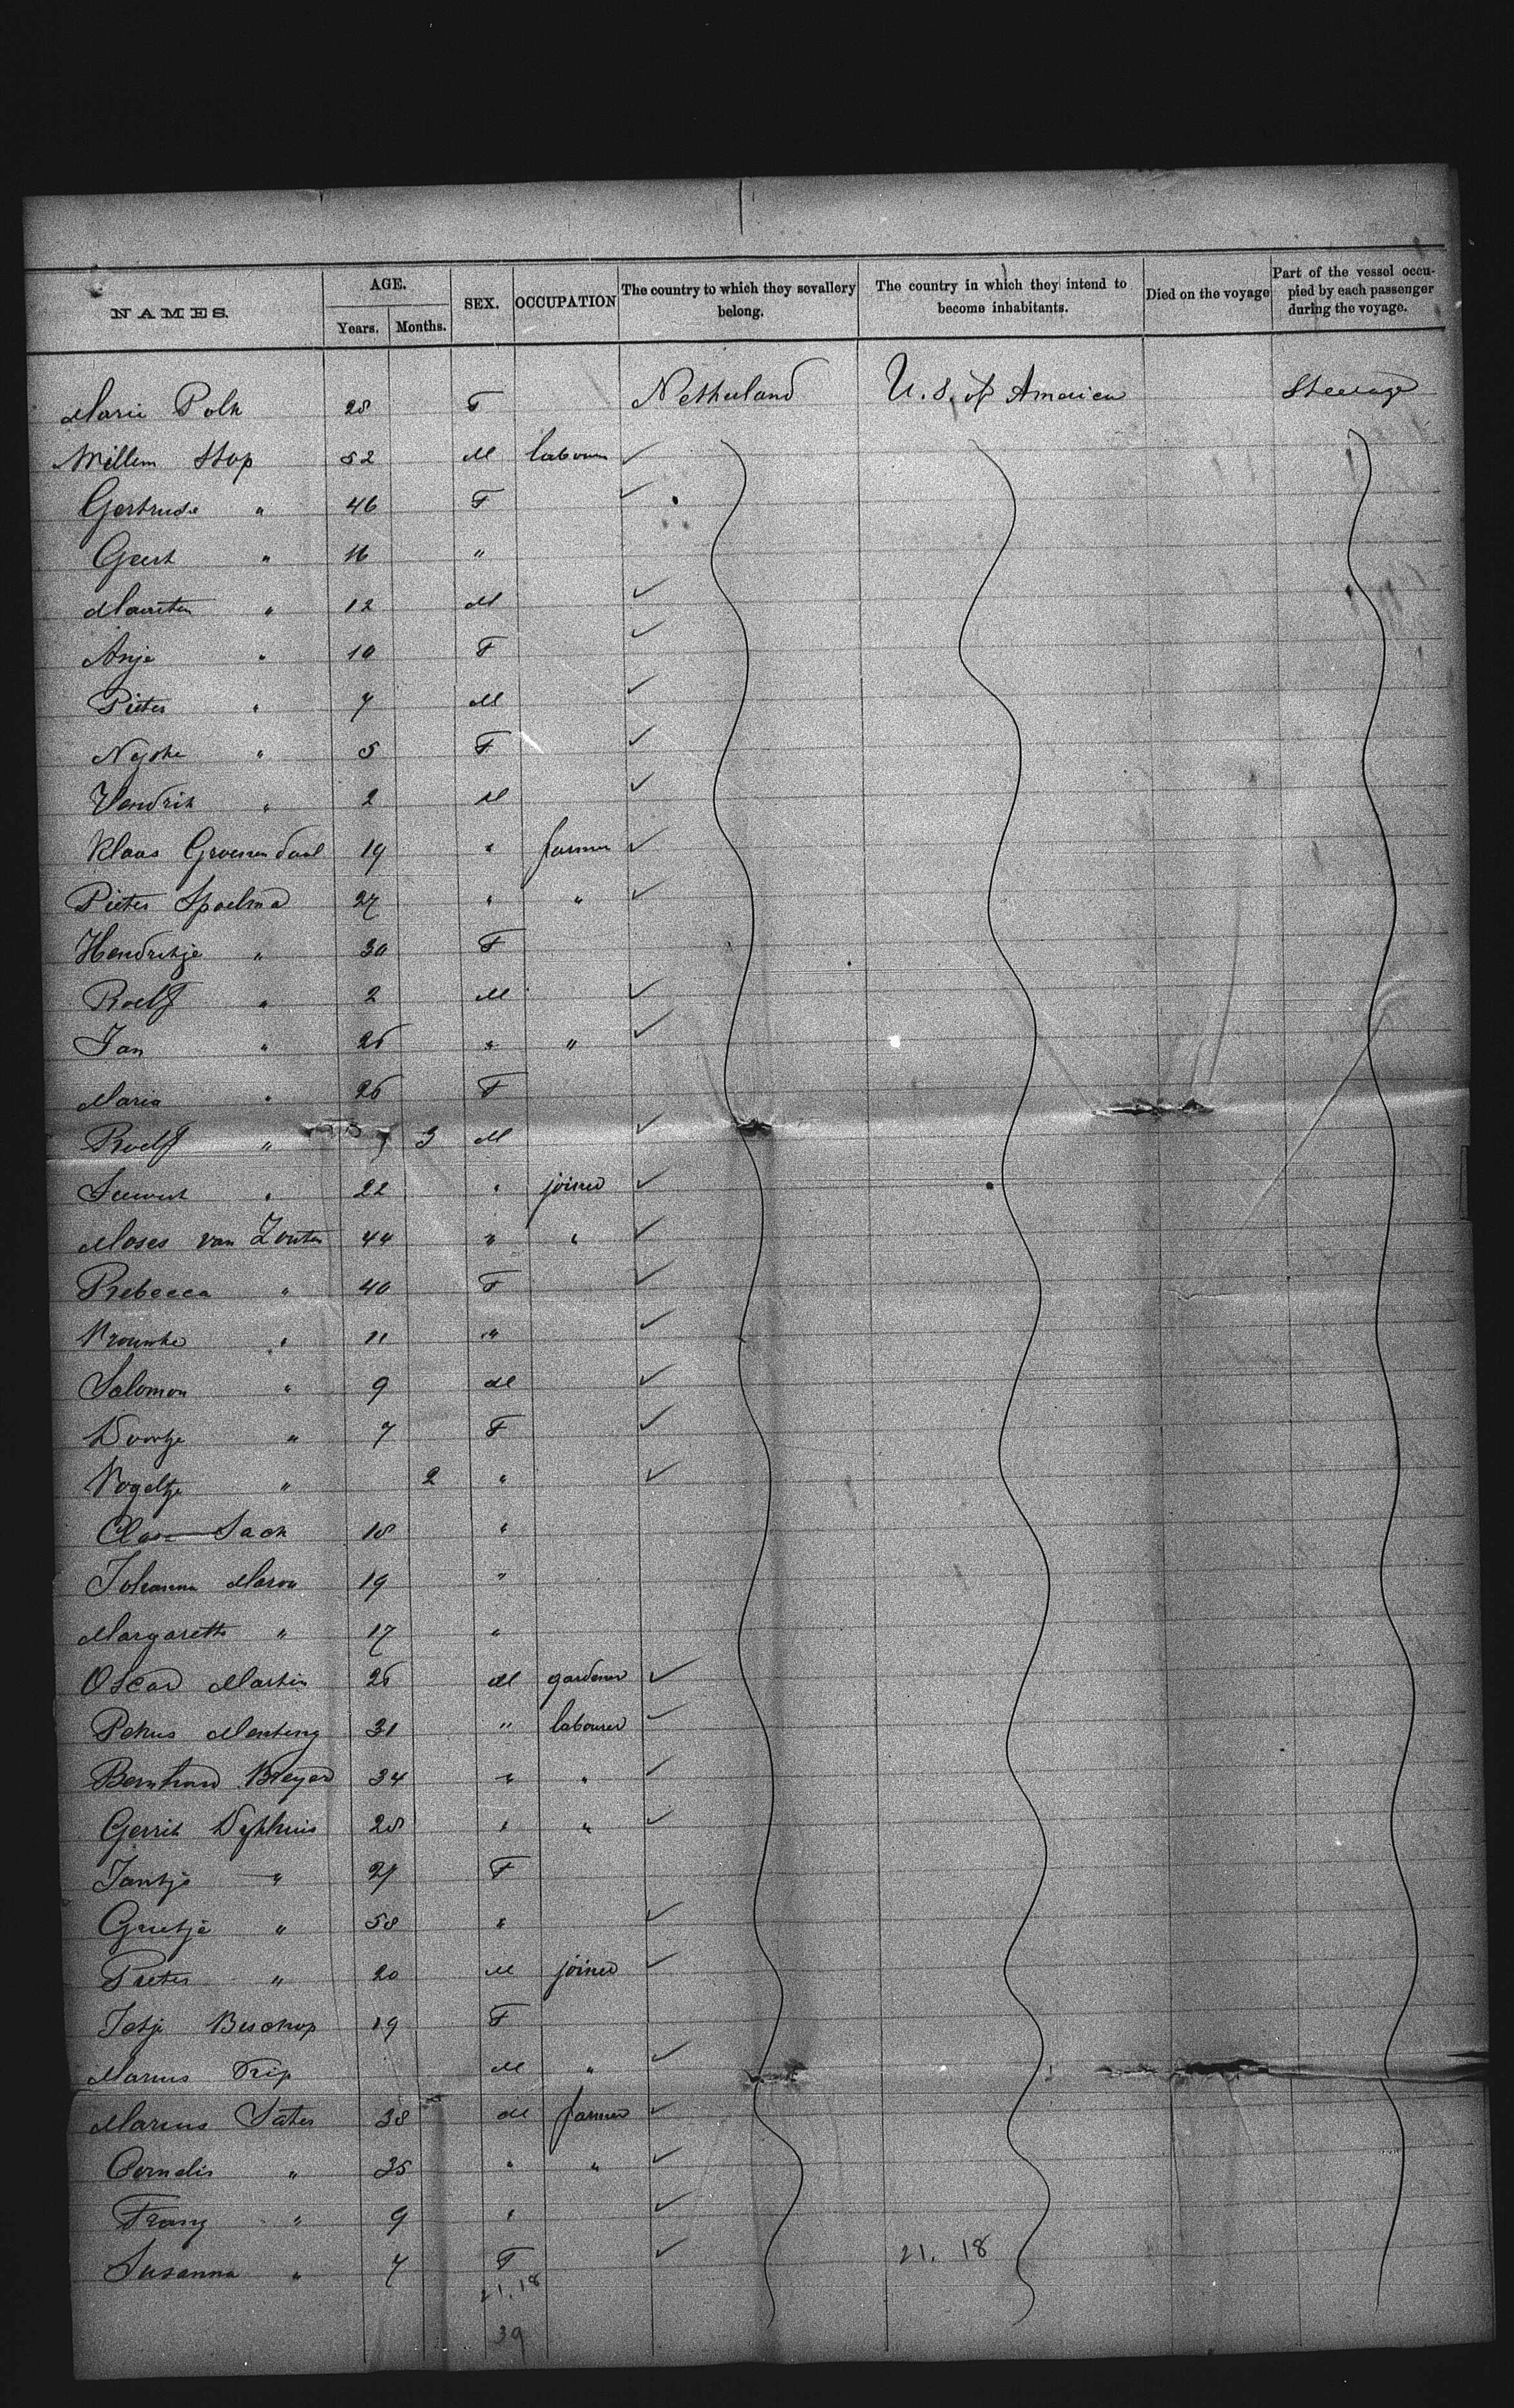 NAMES. AGE. Years. Months. SEX. OCCUPATION The country to which they sevallery belong. The country in which they intend to become inhabitants. Died on the voyage Part of the vessel occupied by each passenger during the voyage.
Marie Polk 28 F Netherland U. S. of America Steerage
Willem Stop 52 M labourer ✓
Gertrude " 46 F ✓
Geert " 16 "
Maarten " 12 M ✓
Anje " 10 F ✓
Pieter " 7 M ✓
" 5 F ✓
Hendrik " 2 M ✓
Klaas Groenendaal 19 " farmer ✓
Pieter Spoelma 27 " " ✓
Hendrikje " 30 F
Roelf " 2 M ✓
Jan " 26 " " ✓
Maria " 26 F
Roelf " 3 M ✓
" 22 " joiner ✓
Moses van Zouten 44 " " ✓
Rebecca " 40 F ✓
Vrouwke " 11 " ✓
Salomon " 9 M ✓
Doortje " 7 F ✓
Vogeltje " 2 " ✓
Sack 18 "
Johanna 19 "
Margareth " 17 "
Oscar Martin 26 M gardener ✓
Petrus Menting 31 " labourer ✓
Bernhard Meyer 34 " " ✓
Gerrit Dykhuis 28 " " ✓
Jantje " 21 F
Grietje " 58 " ✓
Pieter " 20 M joiner ✓
Jetje Bischop 19 F
Marius Trip M " ✓
Marius Sater 38 M farmer ✓
Cornelis " 35 " " ✓
Franz " 9 " ✓
Susanna " 7 F ✓ 21. 18
21. 18
39